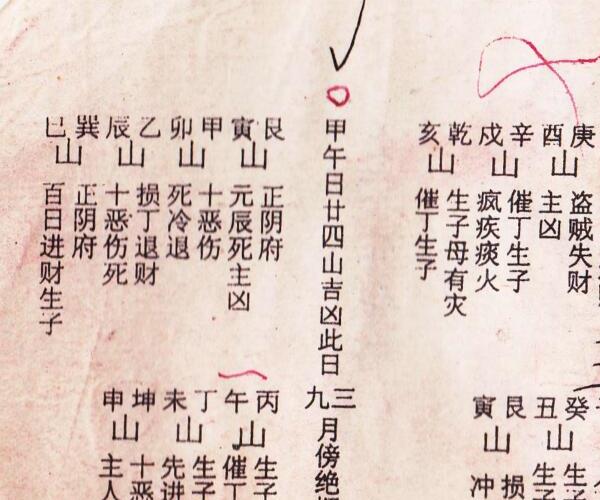 庚山盗贼失财
酉山主凶
辛山催丁生子
戌山疯疾痰火
乾山生子母有灾
亥山催丁生子
癸山生子
丑山生子
艮山损
寅山冲
甲午日廿四山吉凶此日
三九月傍绝
艮山正阴府
寅山元辰死主凶
甲山十恶伤
卯山死冷退
乙山损丁退财
辰山十恶伤死
巽山正阴府
巳山百日进财生子
丙山生子
午山催丁
丁山生子
未山先进
坤山十恶
申山主人